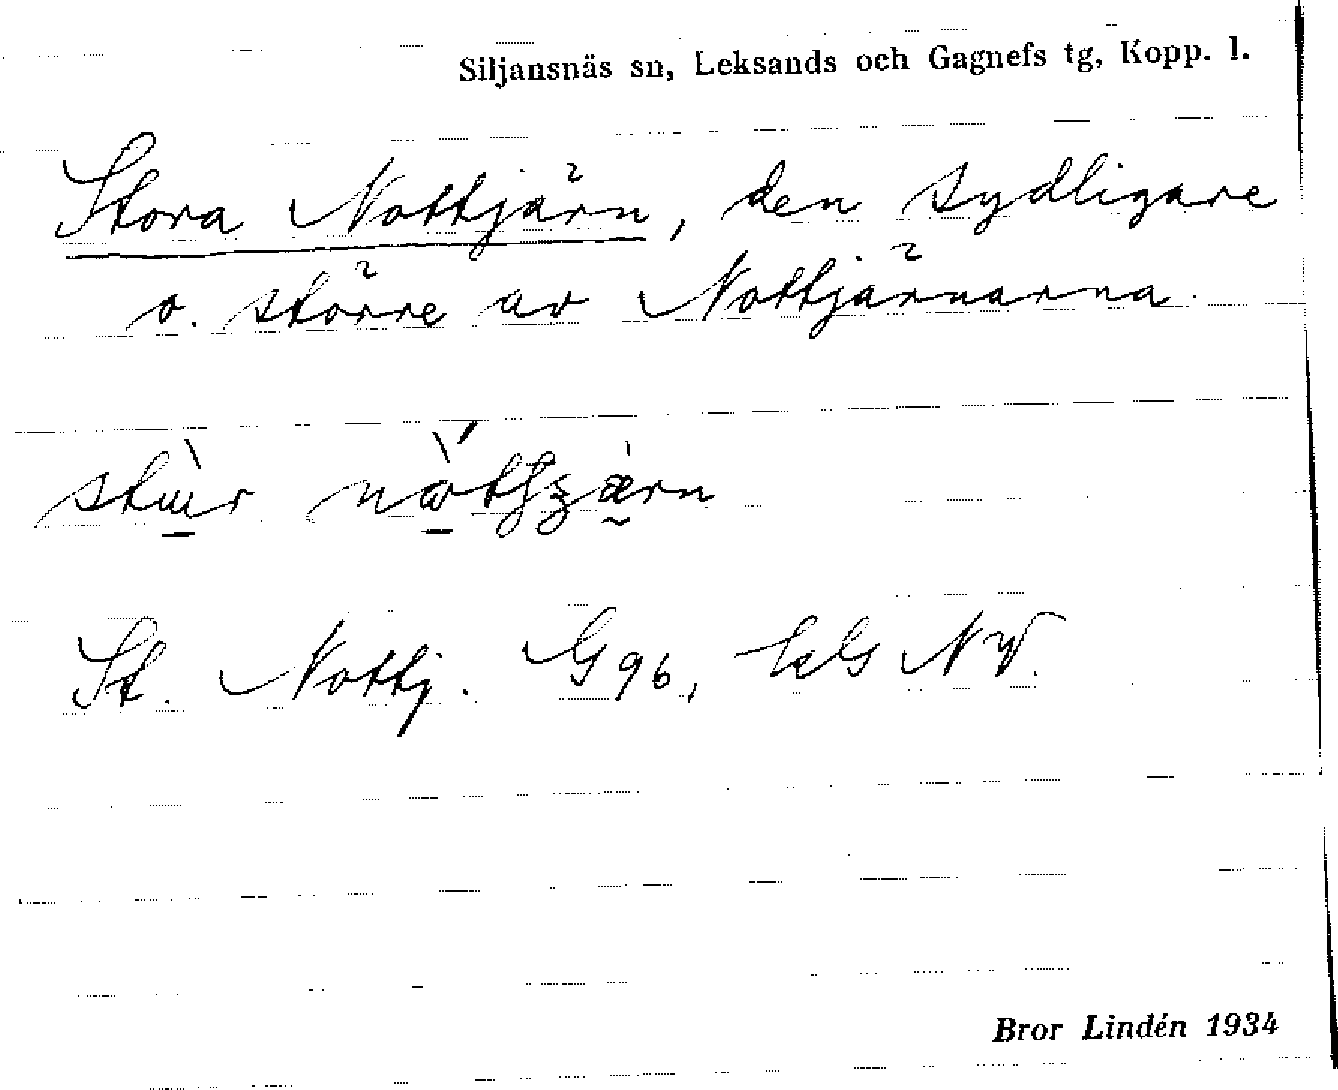 Siljansnäs sn, Leksands och Gagnefs tg, Kopp. l.
Stora Nottjärn, den sydligare
o. större av Nottjärnarna.
St. Nottj. G 96, NV.
Bror Lindén 1934